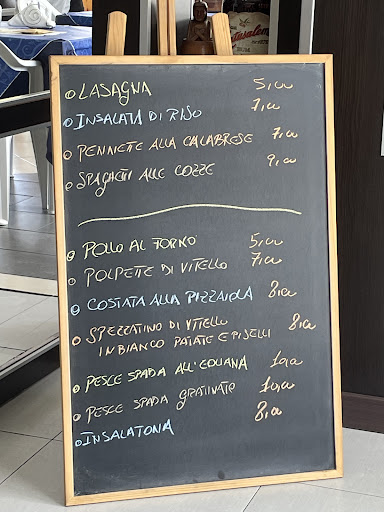 LASAGNA 5,00
INSALATA DI RISO 7,00
PENNETTE ALLA CALABRESE 7,00
SPAGHETTI ALLE COZZE 9,00
POLLO AL FORNO 5,00
POLPETTE DI VITELLO 7,00
COSTATA ALLA PIZZAIOLA 8,00
SPEZZATINO DI VITELLO 8,00
IN BIANCO PATATE E PISELLI
PESCE SPADA ALL'EOLIANA 10,00
PESCE SPADA GRATINATO 10,00
INSALATONA 8,00